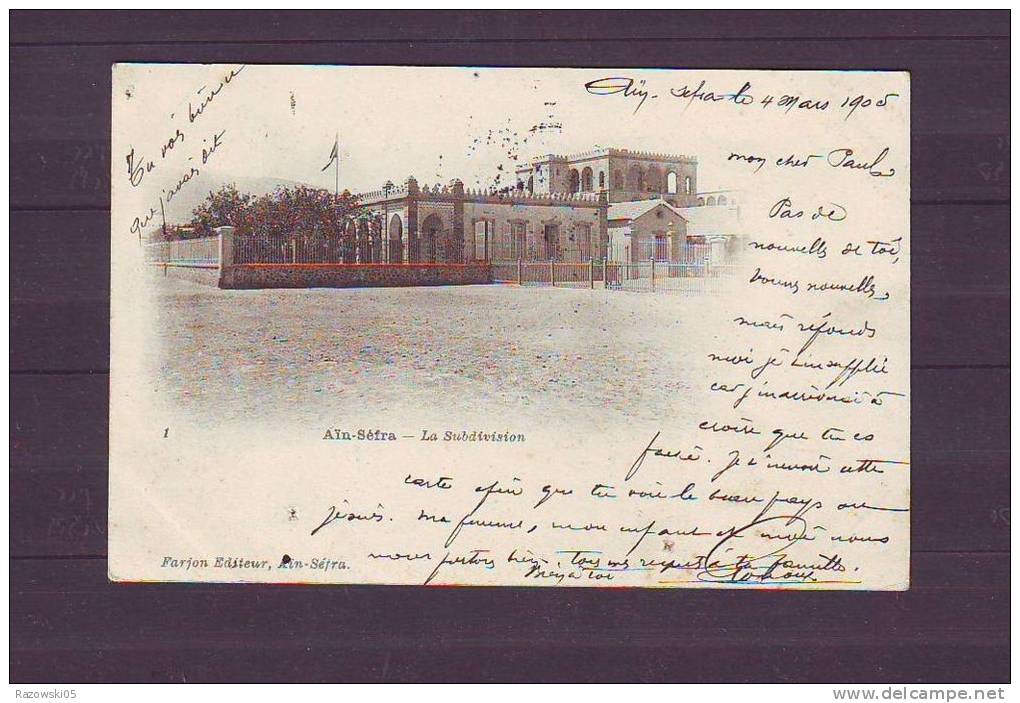 Tu vois bien
que j'avais dit
Aïn-Sefra le 4 Mars 1905
mon cher Paul
Pas de
nouvelle de toi,
bonne nouvelle,
mais réponds
moi je t'en supplie
car j'
croire que tu es
faché. Je t'envoi cette
carte afin que tu voie le beau pays ou
je suis. Ma femme, mon enfant et moi nous
nous portons bien, tous mes respects à ta famille.
Bien à toi
1
Aïn-Séfra — La Subdivision
Farjon Editeur, Aïn-Séfra.
Razowski05
www.delcampe.net